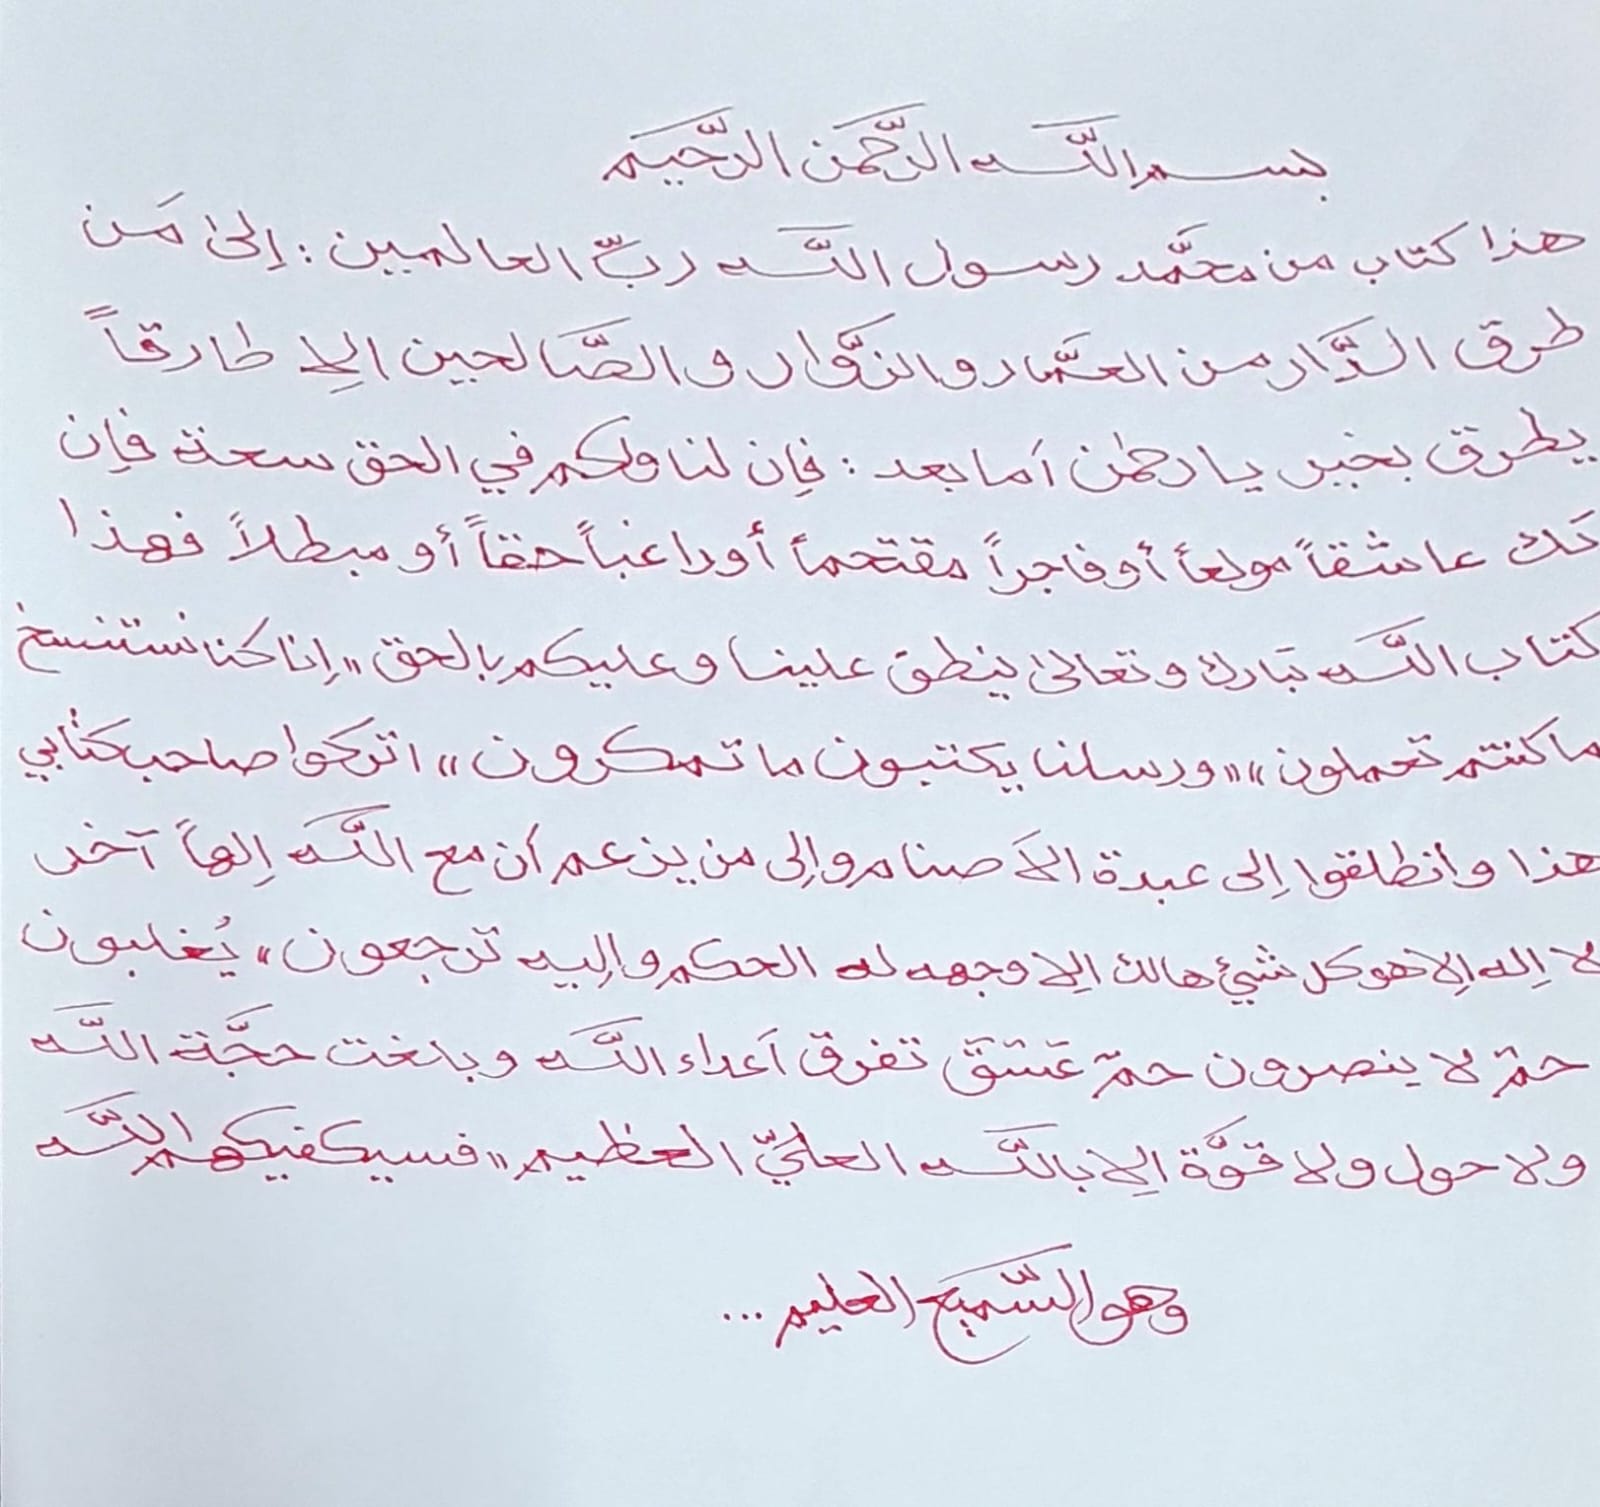 بسم اللَّه الرَّحمَن الرَّحيم
هذا كتاب من محمَّد رسول اللَّه ربِّ العالمين : إلىٰ مَن
طرق الدَّار من العمَّار والزوَّار والصَّالحين الِا طارقاً
يطرق بخير يا رحمٰن أما بعد : فإن لنا ولكم في الحق سعة فإِن
تك عاشقاً مولعاً أو فاجراً مقتحماً أو راغباً حقاً أو مبطلاً فهذا
كتاب اللَّه تبارك وتعالىٰ ينطق علينا وعليكم بالحق "إنا كنا نستنسخ
ما كنتم تعملون" "ورسلنا يكتبون ما تمكرون" اتركوا صاحب كتابي
هذا وانطلقوا إلى عبدة الأصنام وإلى من يزعم أن مع اللَّه إلهاً آخر
لا إله إلا هو كل شيئ هالك الِا وجهه له الحكم واليه ترجعون" يُغلبون
حمۤ لا ينصرون حمۤ عۤسۤقۤ تفرق أعداء اللَّه وبلغت حجَّة اللَّه
ولا حول ولا قوَّة الِا باللَّه العليّ العظيم "فسيكفيكهم اللَّه
وهو السَّميع العليم ...